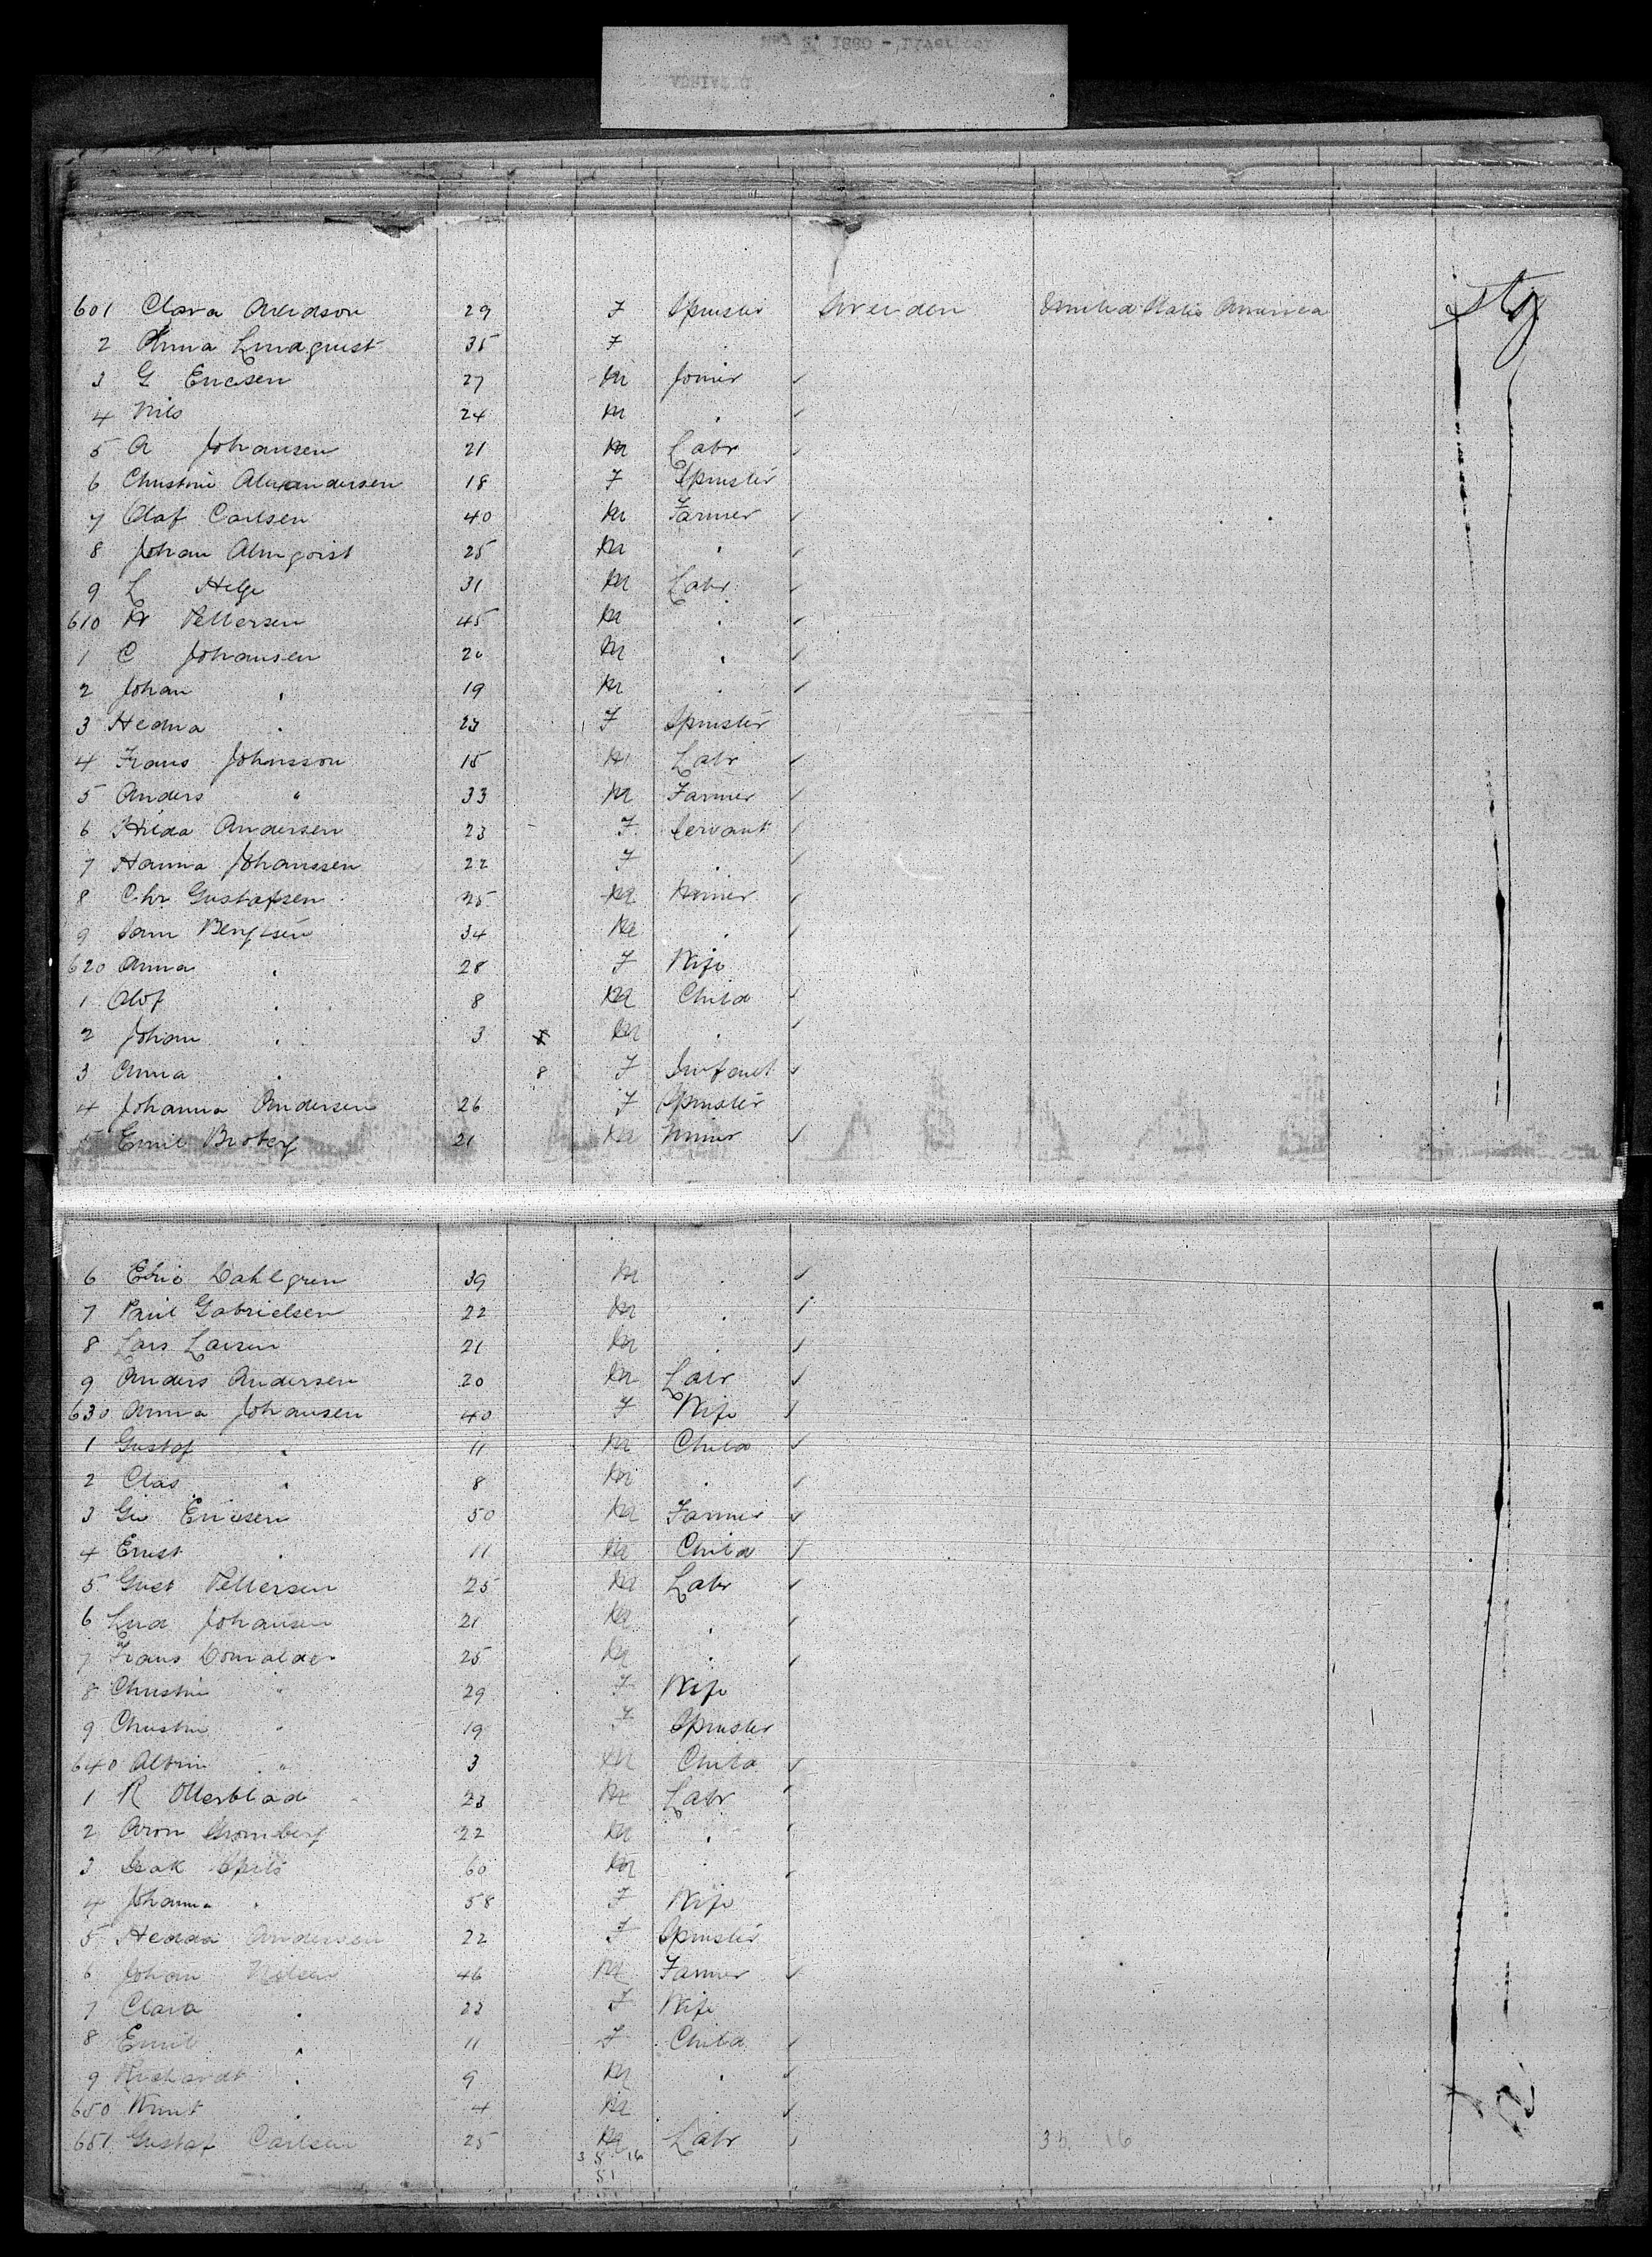 601 Clara Arvidson 29 F Spinster Sweeden United States America Stg
2 Anna Lindquist 35 F "
3 G Ericsen 27 M Joiner
4 Nils 24 M "
5 A Johansen 21 M Labr
6 Christine Alexandersen 18 F Spinster
7 Olaf Carlsen 40 M Farmer
8 Johan Almqvist 25 M "
9 L Helge 31 M Labr
610 Pettersen 45 M "
1 C Johansen 20 M "
2 Johan " 19 M "
3 Hedna " 23 F Spinster
4 Frans Johnsson 15 M Labr
5 Anders " 33 M Farmer
6 Hilda Andersen 23 F Servant
7 Hanna Johanssen 22 F "
8 Chr Gustafsen 25 M Miner
9 Bengtsen 34 M "
620 Anna " 28 F Wife
1 Olof " 8 M Child
2 Johan " 3 M "
3 Anna " 8 F Infant
4 Johanna Andersen 26 F Spinster
5 Emil Broberg 21 M Miner
6 Eric Dahlgren 39 M "
7 Paul Gabrielsen 22 M "
8 Lars Larsen 21 M "
9 Anders Andersen 20 M Labr
630 Anna Johansen 40 F Wife
1 Gustaf " 11 M Child
2 Clas " 8 M "
3 Ericsen 50 M Farmer
4 Ernst " 11 M Child
5 Gust Pettersen 25 M Labr
6 Johansen 21 M "
7 Frans 25 M "
8 Christin " 29 F Wife
9 Christin " 19 F Spinster
640 Albin " 3 M Child
1 R Otterblad 23 M Labr
2 Aron 22 M "
3 Isak 60 M "
4 Johanna " 58 F Wife
5 Hedda Andersen 22 F Spinster
6 Johan Nelsen 46 M Farmer
7 Clara " 23 F Wife
8 Emil " 11 F Child
9 Richardt " 9 M "
650 Knut " 4 M "
651 Gustaf Carlsen 25 M Labr 35 16
35 16
51